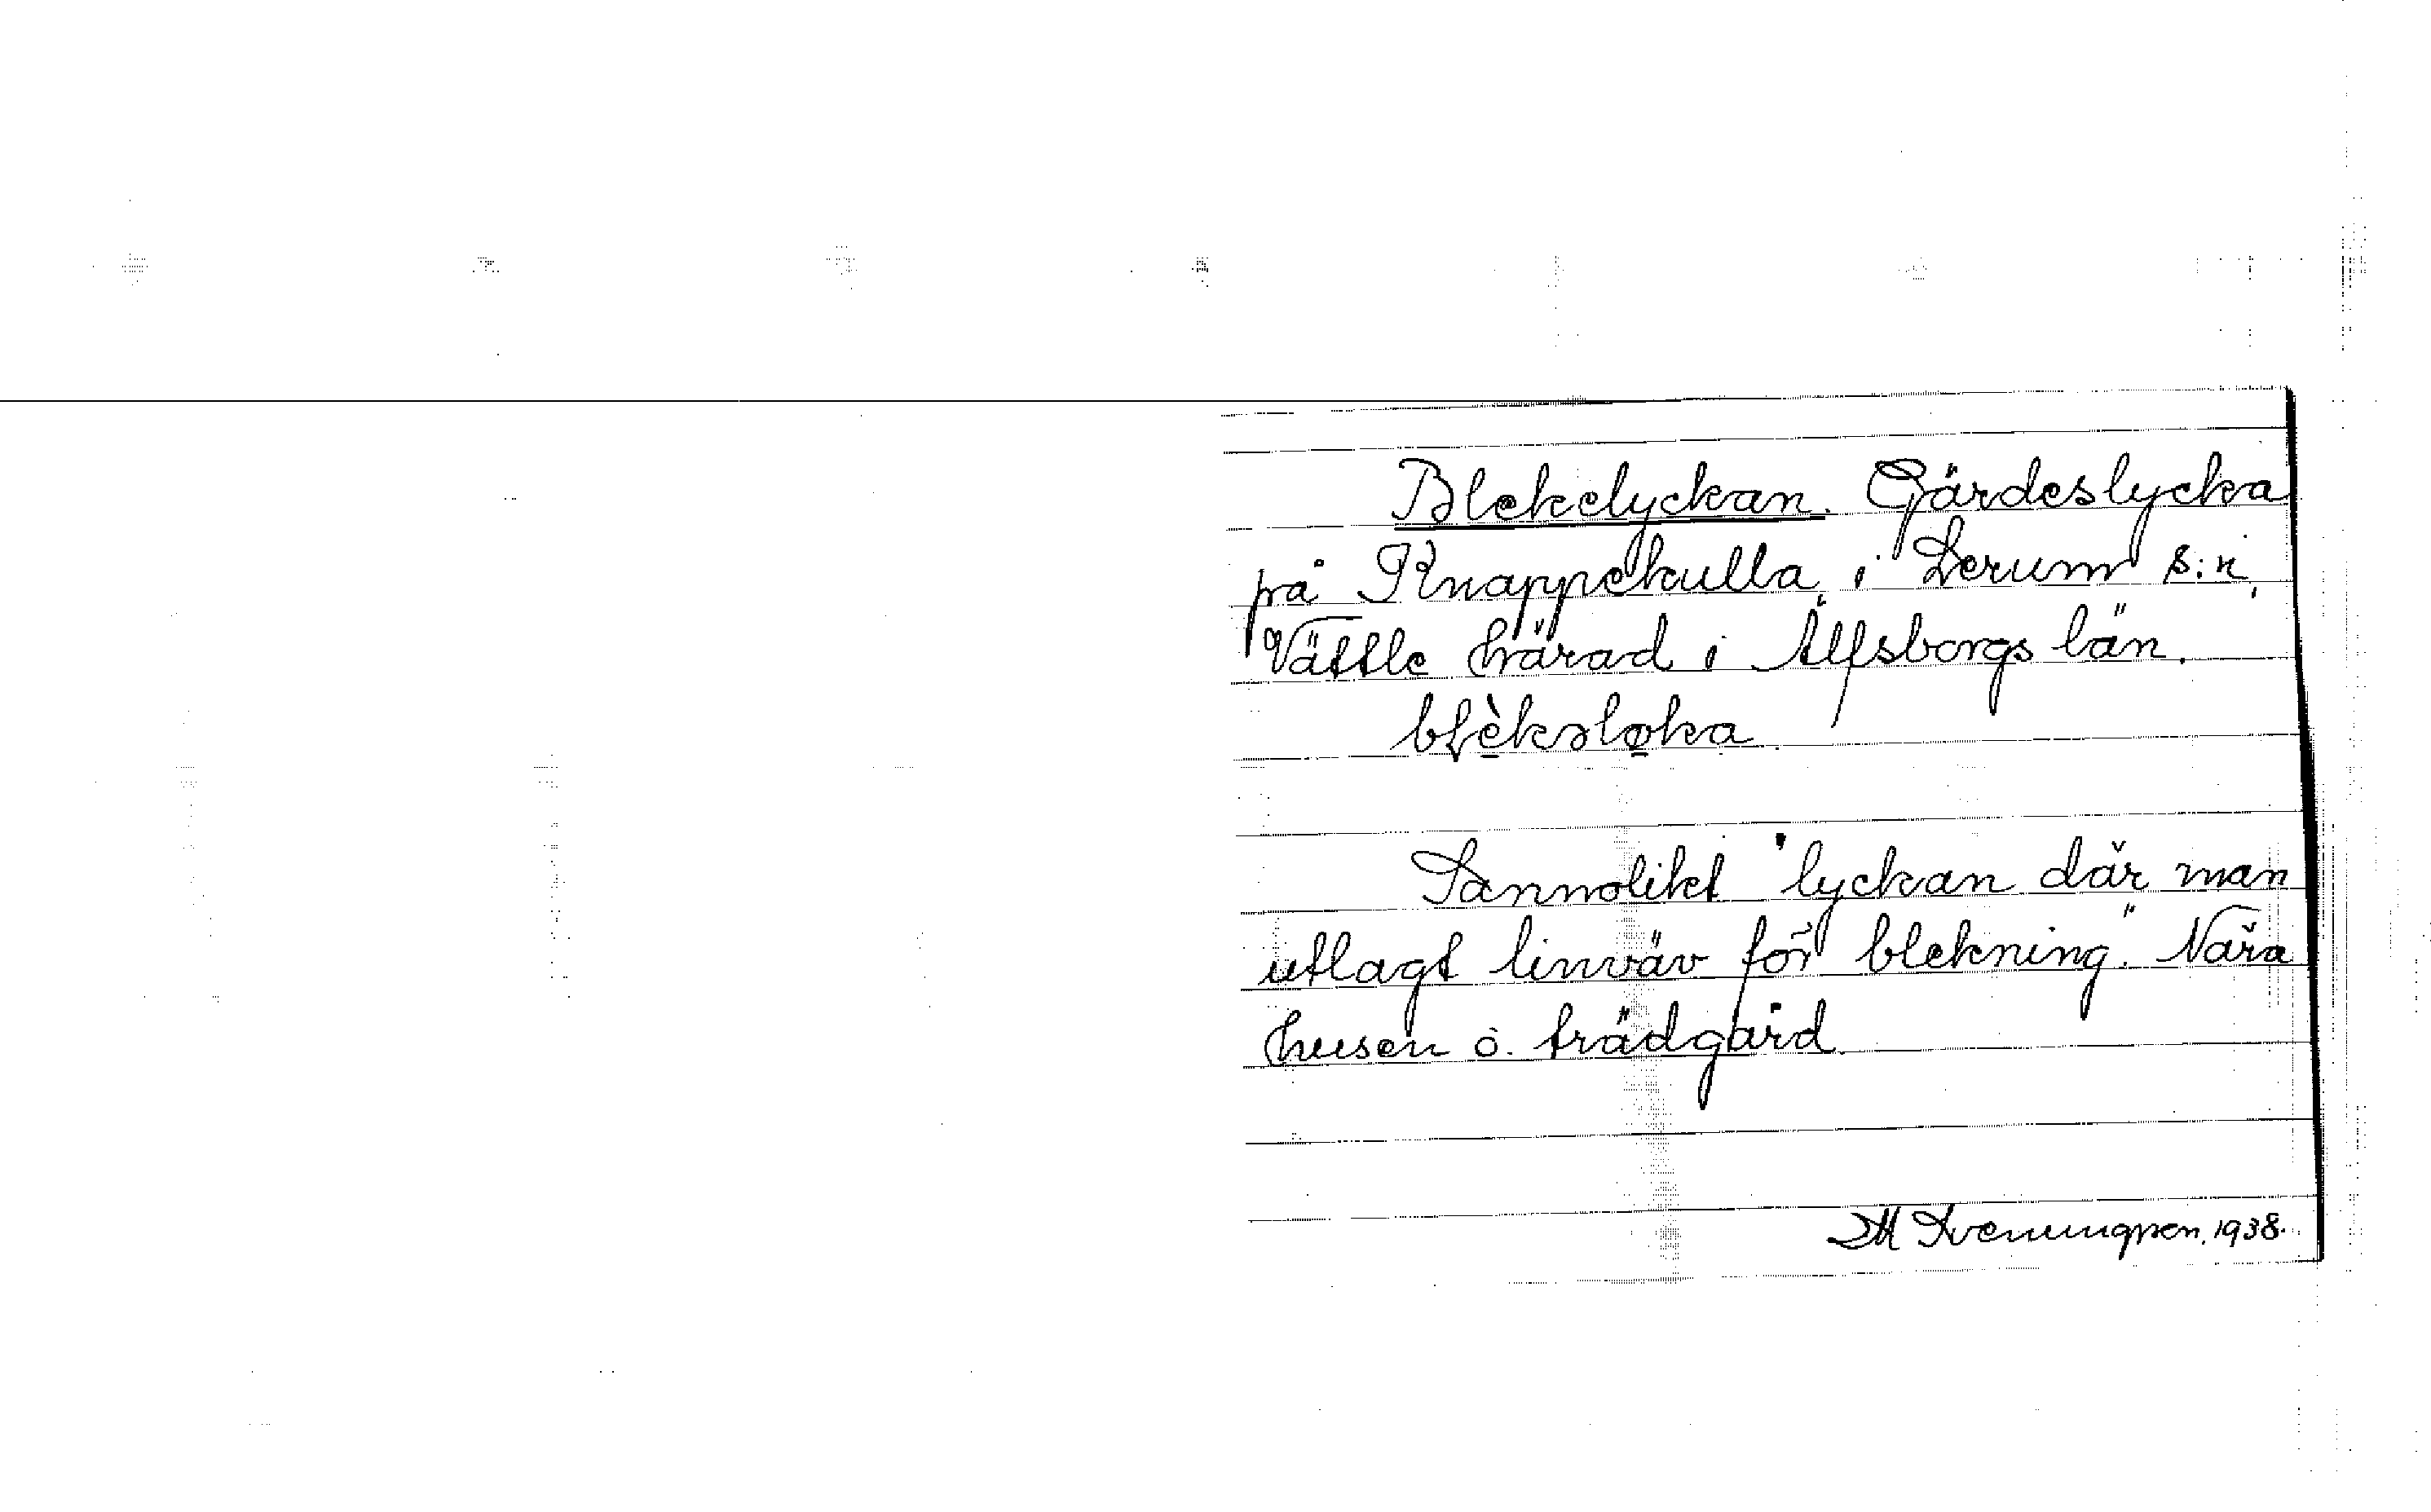 Blekelyckan. Gärdeslycka
på Knappekulla i Lerum s:n,
Vättle härad i Älfsborgs län.
blèkslo̱ka
Sannolikt "lyckan där man
utlagt linväv för blekning". Nära
husen o. trädgård.
1938.